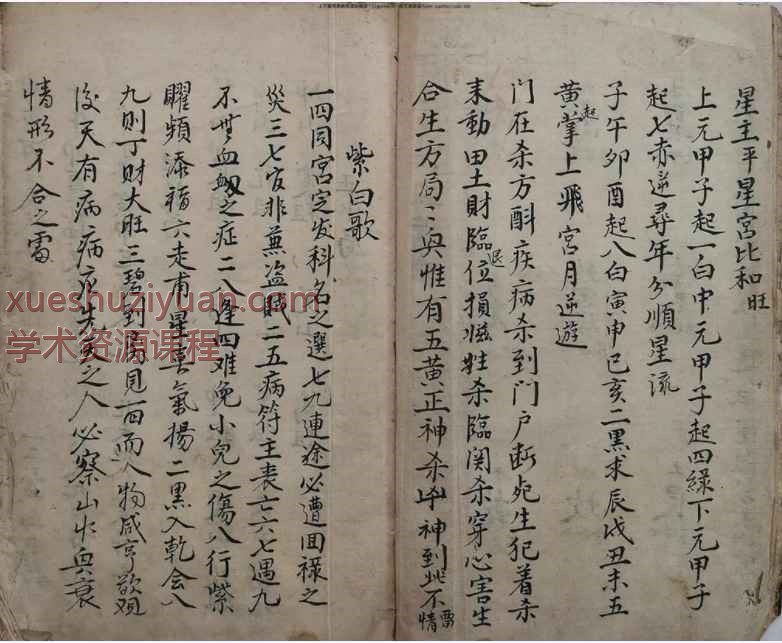 星主平星宮比和旺
上元甲子起一白中元甲子起四綠下元甲子
起七赤逆尋年分順星流
子午卯酉起八白寅申巳亥二黑求辰戌丑未五
黄起掌上飛宮月逆遊
门在杀方酙疾病杀到门户断死生犯着杀
来動田土財臨退位損滋牲杀臨関杀穿心害生
合生方局〻興惟有五黄正神杀凶神到此不
雷情
紫白歌
一四同宮定发科名之選七九連途必遭囬禄之
災三七官非兼盗賊二五病符主丧亡六七遇九
不世血衂之症二八逢四难免小兒之傷八行紫
曜頻添禧六走甫星喜氣揚二黑入乾会八
九则丁財大旺三碧到 見一四而人物咸亨欲观
後天有病病 先 之人必察山水興衰
情形不合之雷
xueshuziyuan.com
学术资源课程